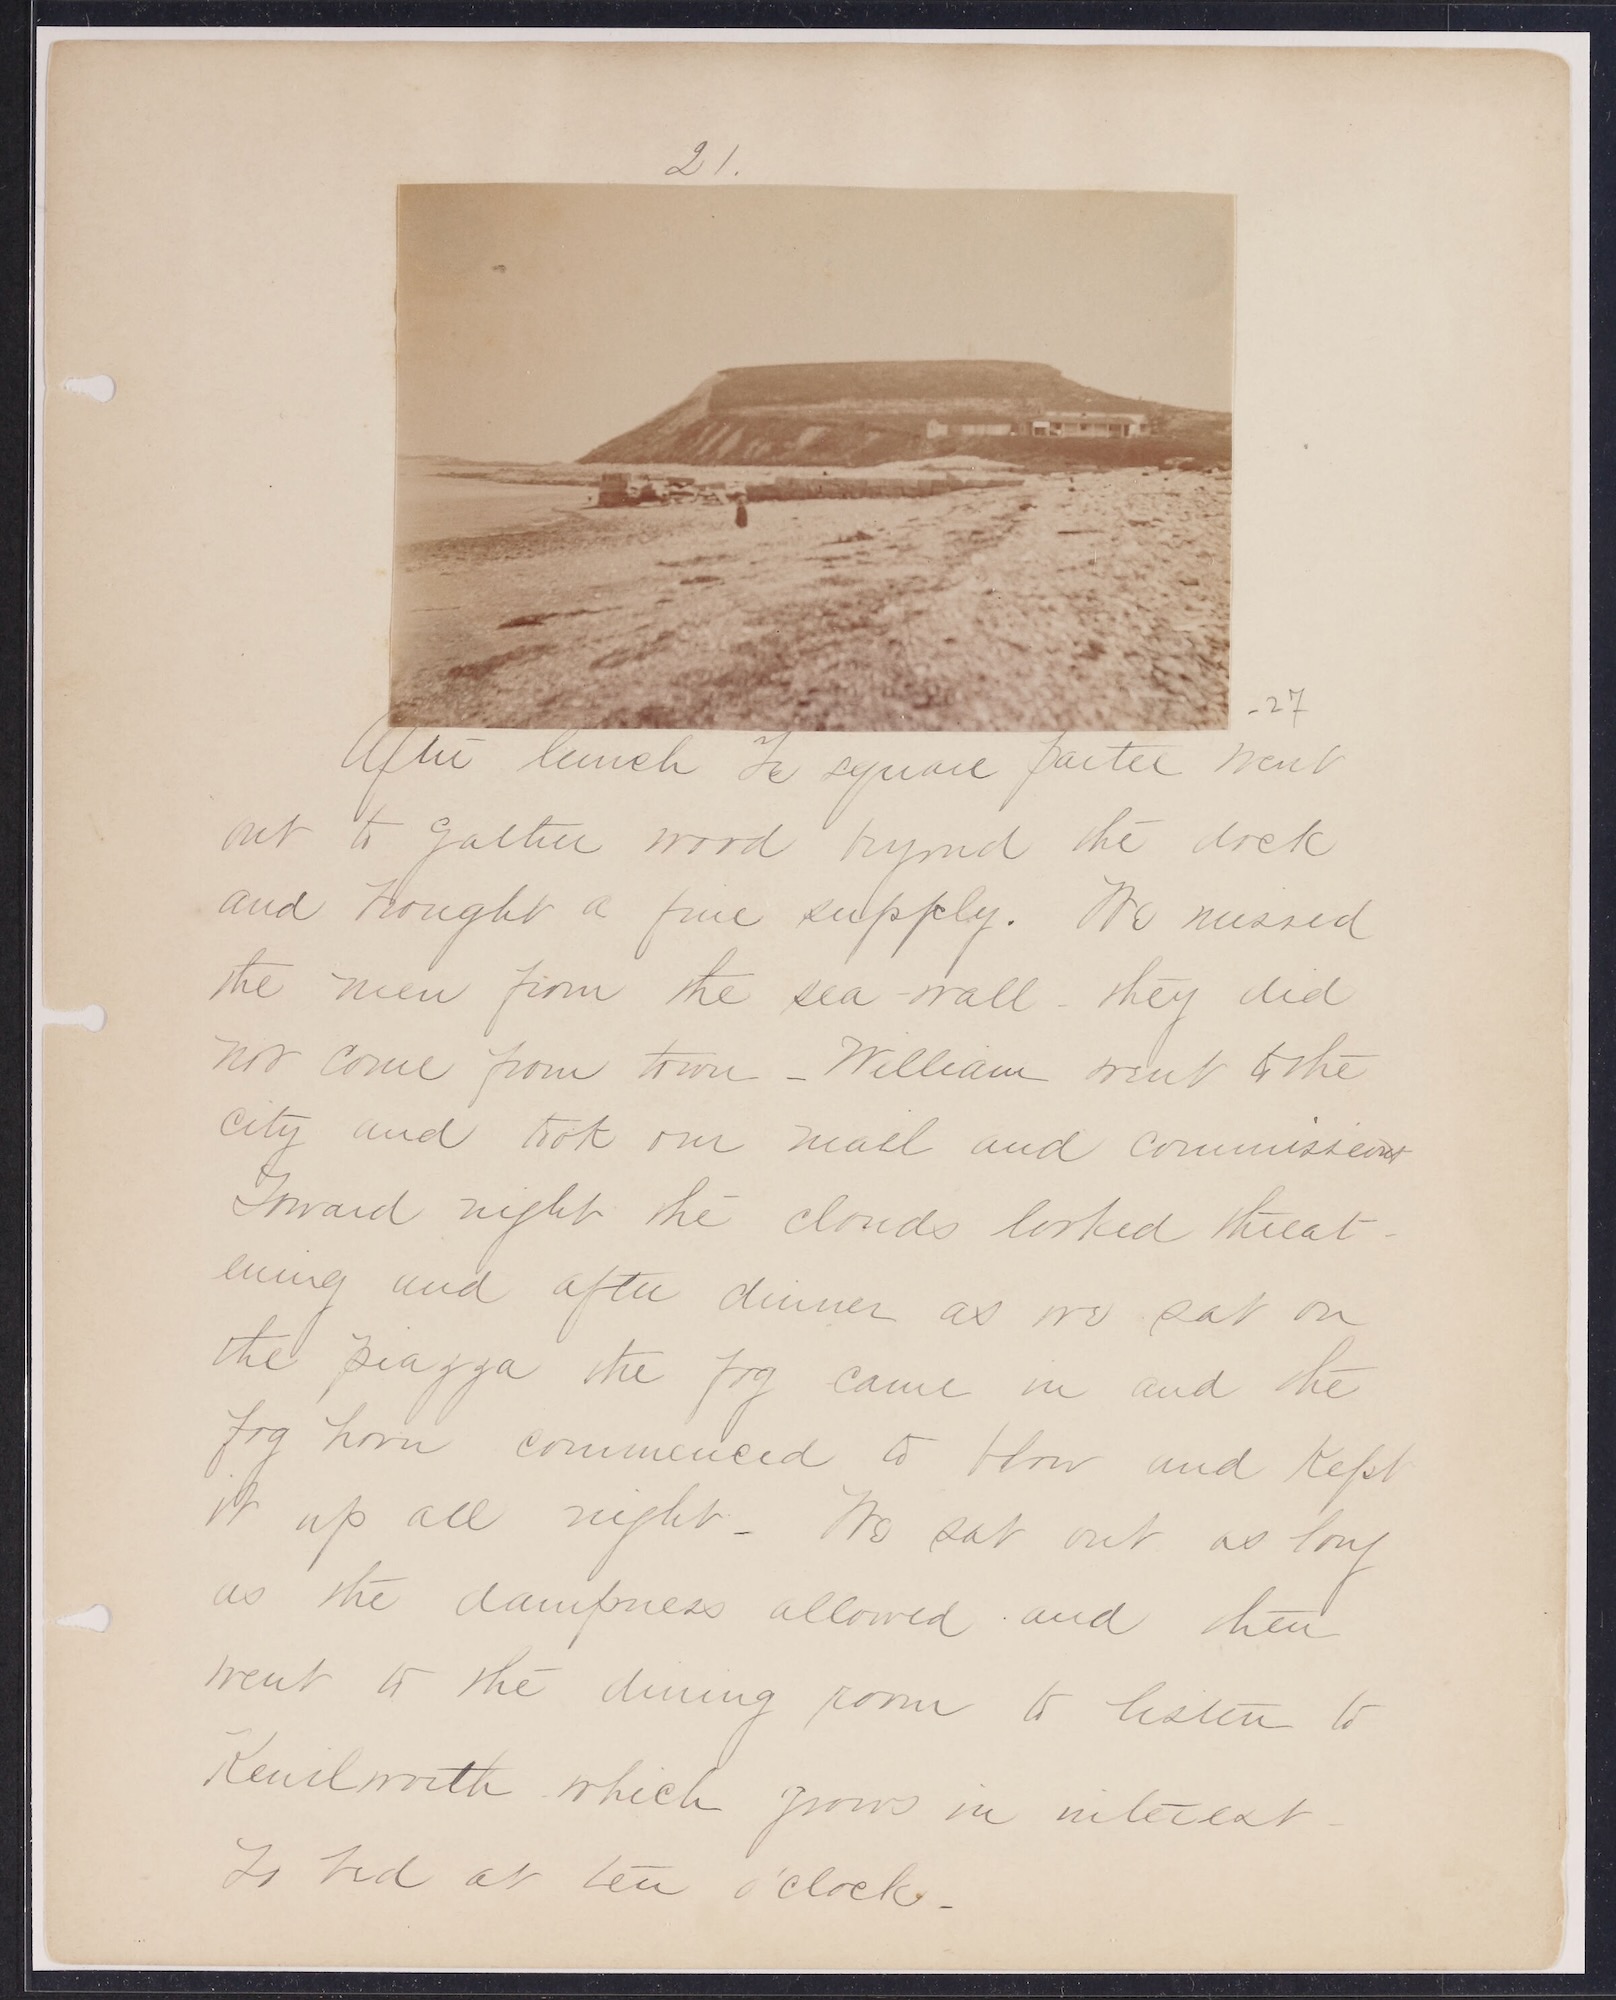 21.
-27
After lunch Ye square partee went
out to gather wood beyond the dock
and brought a fine supply. We missed
the men from the sea-wall - they did
not come from town - William went to the
city and took our mail and commissions
Toward night the clouds looked threat-
ening and after dinner as we sat on
the piazza the fog came in and the
fog horn commenced to blow and kept
it up all night - We sat out as long
as the dampness allowed and then
went to the dining room to listen to
Kenilworth which grows in interest -
To bed at ten o'clock -